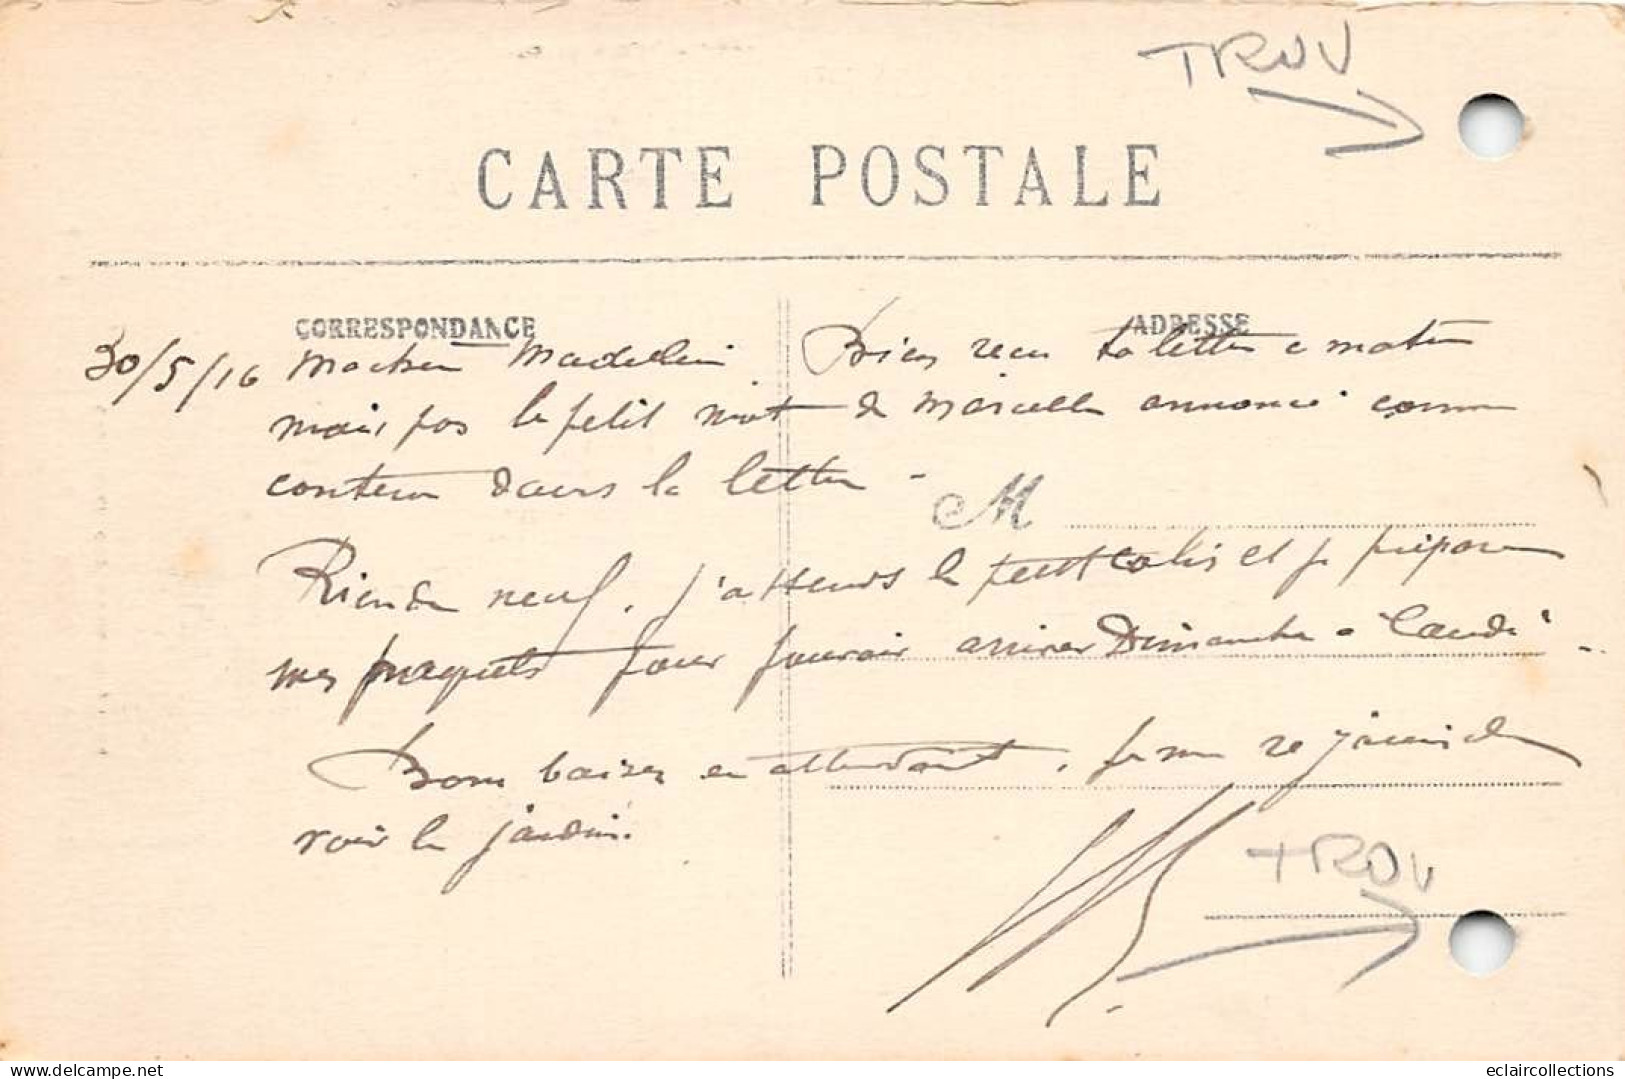 TROU
CARTE POSTALE
CORRESPONDANCE
ADRESSE
30/5/16 Ma chère Madeleine Bien reçu ta lettre ce matin
mais pas le petit mot de Marcelle annoncé comme
contenu dans la lettre -
M
Rien de neuf. J'attends le petit colis et je prépare
mes paquets pour pouvoir arriver Dimanche à
Bons baisers en attendant. Je me réjouis de
voir le jardin.
TROU
eclaircollections